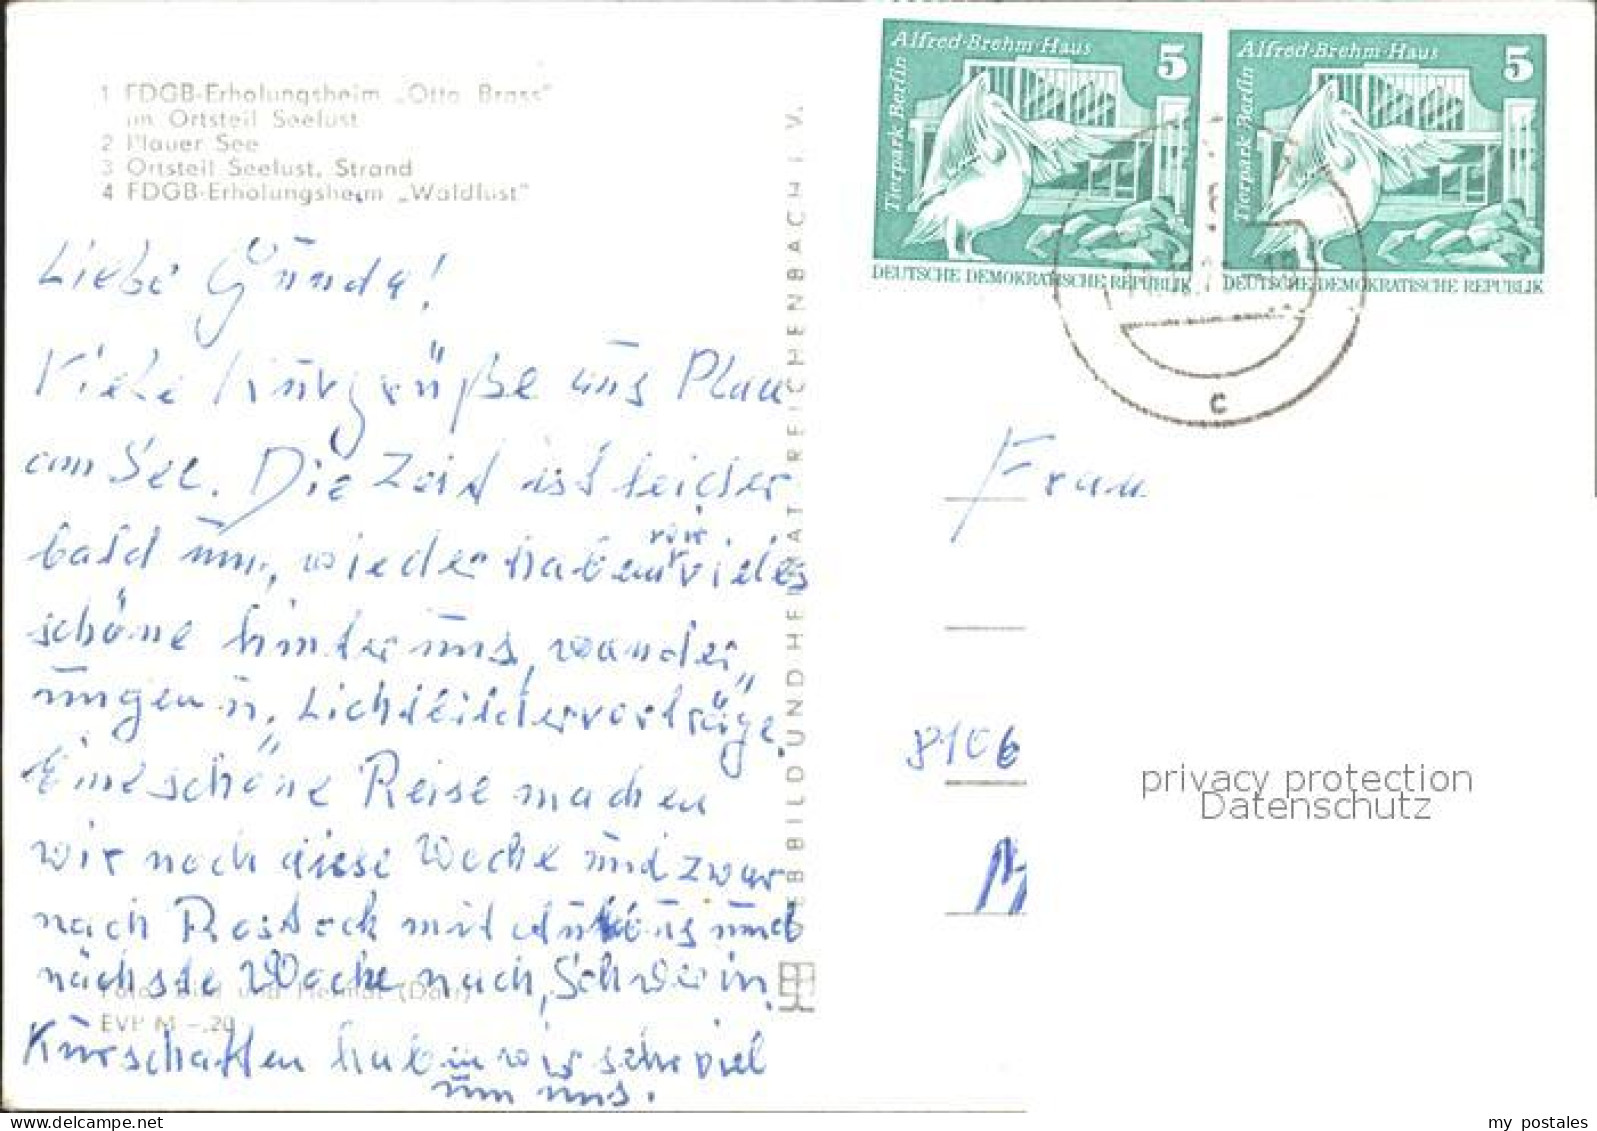 1 FDGB-Erholungsheim „Otto Brass"
im Ortsteil Seelust
2 Plauer See
3 Ortsteil Seelust, Strand
4 FDGB-Erholungsheim „Waldlust"
Liebe Gunda!
Viele Kurgrüße aus Plau
am See. Die Zeit ist leider
bald um, wieder haben wir vieles
schöne hinter uns, wander„
ungen u. Lichtbildervorträge.
Eine schöne Reise machen
wir noch diese Woche und zwar
nach Rostock mit Autobus und
nächste Woche nach Schwerin.
Kurschatten haben wir sehr viel
um uns.
EVP M -.20
BILD UND HEIMAT REICHENBACH I. V.
Alfred-Brehm-Haus 5
Tierpark Berlin
DEUTSCHE DEMOKRATISCHE REPUBLIK
Alfred-Brehm-Haus 5
Tierpark Berlin
DEUTSCHE DEMOKRATISCHE REPUBLIK
c
Frau
8106
privacy protection
Datenschutz
my postales